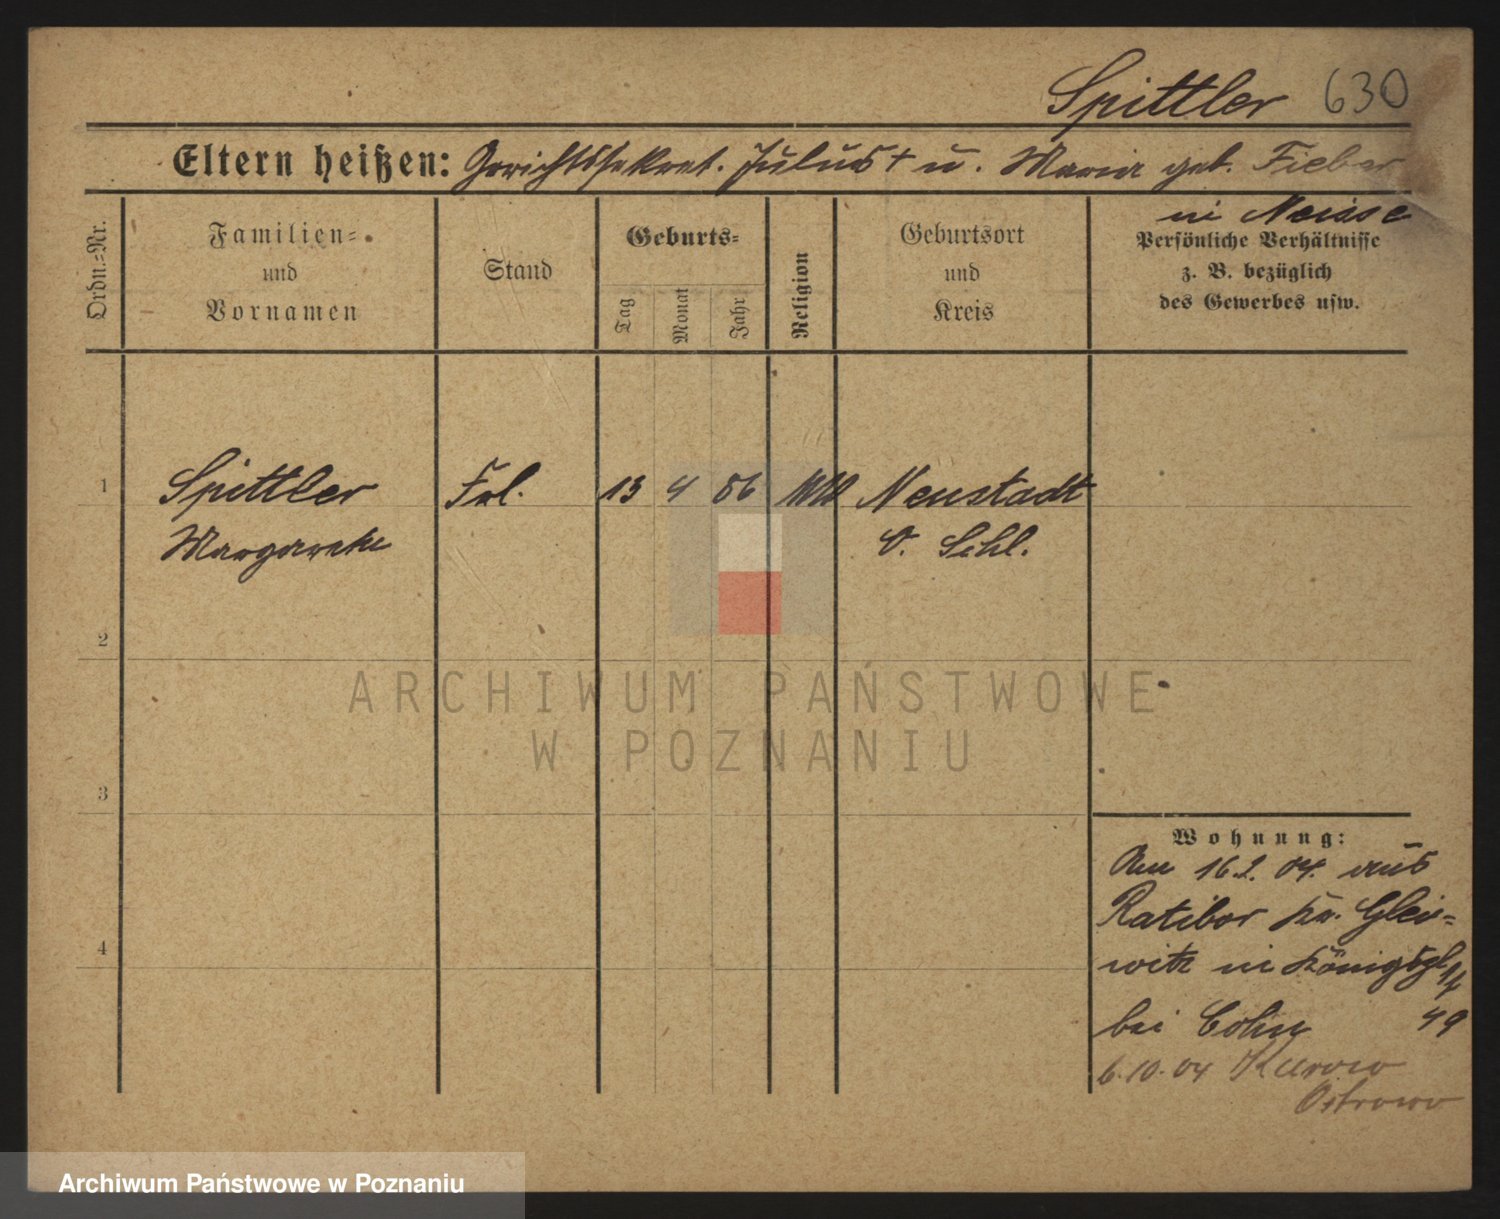 Spittler 630
Eltern heißen: Gerichtssekret. Julius † u. Maria geb. Fieber
in Neisse
Ordn.=Nr.
Familien=
und
Vornamen
Stand
Geburts=
Tag
Monat
Jahr
Religion
Geburtsort
und
Kreis
Persönliche Verhältnisse
z. B. bezüglich
des Gewerbes usw.
1
Spittler Frl. 13 4 86 Neustadt
Margarethe O. Schl.
2
ARCHIWUM PAŃSTWOWE
W POZNANIU
3
Wohnung:
Am 16.2. 04. aus
Ratibor Kr. Glei=
witz in Königspl
bei Cohn 49
6.10.04 Kurow
Ostrowo
4
Archiwum Państwowe w Poznaniu